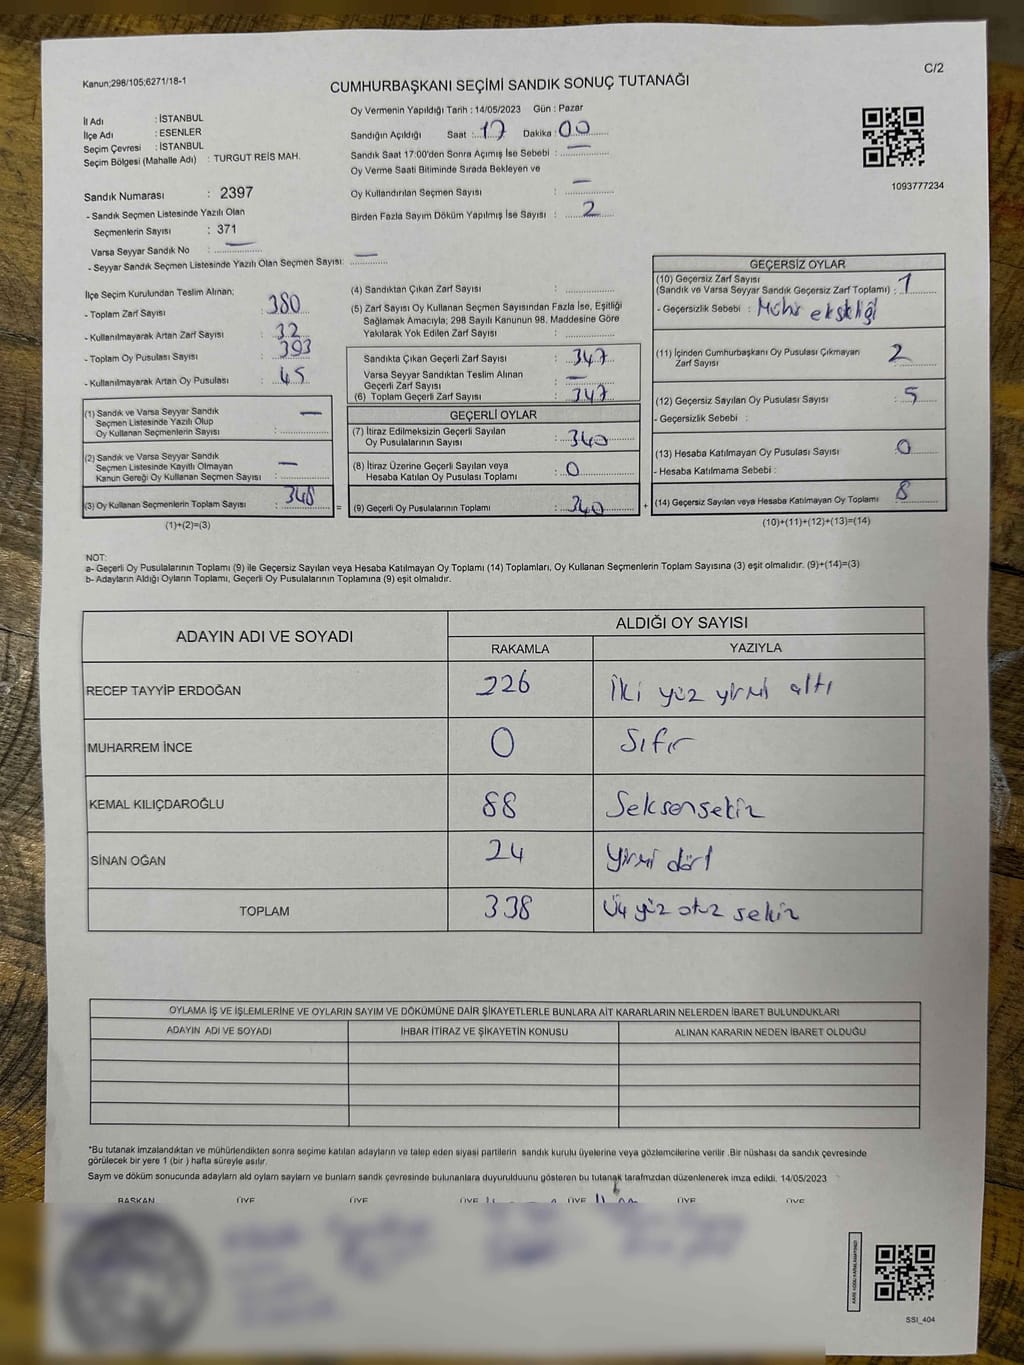 Kanun;298/105;6271/18-1
C/2
CUMHURBAŞKANI SEÇİMİ SANDIK SONUÇ TUTANAĞI
İl Adı : İSTANBUL
İlçe Adı : ESENLER
Seçim Çevresi : İSTANBUL
Seçim Bölgesi (Mahalle Adı) : TURGUT REİS MAH.
Oy Vermenin Yapıldığı Tarih : 14/05/2023 Gün : Pazar
Sandığın Açıldığı Saat : 17 Dakika : 00
Sandık Saat 17:00'den Sonra Açımış İse Sebebi : —
Oy Verme Saati Bitiminde Sırada Bekleyen ve
Oy Kullandırılan Seçmen Sayısı : —
Birden Fazla Sayım Döküm Yapılmış İse Sayısı : 2
1093777234
Sandık Numarası : 2397
- Sandık Seçmen Listesinde Yazılı Olan
Seçmenlerin Sayısı : 371
Varsa Seyyar Sandık No : —
- Seyyar Sandık Seçmen Listesinde Yazılı Olan Seçmen Sayısı: —
İlçe Seçim Kurulundan Teslim Alınan;
- Toplam Zarf Sayısı : 380
- Kullanılmayarak Artan Zarf Sayısı : 32
- Toplam Oy Pusulası Sayısı : 393
- Kullanılmayarak Artan Oy Pusulası : 45
(1) Sandık ve Varsa Seyyar Sandık
Seçmen Listesinde Yazılı Olup
Oy Kullanan Seçmenlerin Sayısı : —
(2) Sandık ve Varsa Seyyar Sandık
Seçmen Listesinde Kayıtlı Olmayan
Kanun Gereği Oy Kullanan Seçmen Sayısı : —
(3) Oy Kullanan Seçmenlerin Toplam Sayısı : 348
(1)+(2)=(3)
=
(4) Sandıktan Çıkan Zarf Sayısı :
(5) Zarf Sayısı Oy Kullanan Seçmen Sayısından Fazla İse, Eşitliği
Sağlamak Amacıyla; 298 Sayılı Kanunun 98. Maddesine Göre
Yakılarak Yok Edilen Zarf Sayısı :
Sandıkta Çıkan Geçerli Zarf Sayısı : 347
Varsa Seyyar Sandıktan Teslim Alınan
Geçerli Zarf Sayısı : —
(6) Toplam Geçerli Zarf Sayısı : 347
GEÇERLİ OYLAR
(7) İtiraz Edilmeksizin Geçerli Sayılan
Oy Pusulalarının Sayısı : 340
(8) İtiraz Üzerine Geçerli Sayılan veya
Hesaba Katılan Oy Pusulası Toplamı : 0
(9) Geçerli Oy Pusulalarının Toplamı : 340
+
GEÇERSİZ OYLAR
(10) Geçersiz Zarf Sayısı
(Sandık ve Varsa Seyyar Sandık Geçersiz Zarf Toplamı) : 1
- Geçersizlik Sebebi : Mühür eksikliği
(11) İçinden Cumhurbaşkanı Oy Pusulası Çıkmayan
Zarf Sayısı : 2
(12) Geçersiz Sayılan Oy Pusulası Sayısı : 5
- Geçersizlik Sebebi :
(13) Hesaba Katılmayan Oy Pusulası Sayısı : 0
- Hesaba Katılmama Sebebi :
(14) Geçersiz Sayılan veya Hesaba Katılmayan Oy Toplamı : 8
(10)+(11)+(12)+(13)=(14)
NOT:
a- Geçerli Oy Pusulalarının Toplamı (9) ile Geçersiz Sayılan veya Hesaba Katılmayan Oy Toplamı (14) Toplamları, Oy Kullanan Seçmenlerin Toplam Sayısına (3) eşit olmalıdır. (9)+(14)=(3)
b- Adayların Aldığı Oyların Toplamı, Geçerli Oy Pusulalarının Toplamına (9) eşit olmalıdır.
ADAYIN ADI VE SOYADI
ALDIĞI OY SAYISI
RAKAMLA YAZIYLA
RECEP TAYYİP ERDOĞAN 226 İki yüz yirmi altı
MUHARREM İNCE 0 Sıfır
KEMAL KILIÇDAROĞLU 88 Seksensekiz
SİNAN OĞAN 24 Yirmi dört
TOPLAM 338 Üç yüz otuz sekiz
OYLAMA İŞ VE İŞLEMLERİNE VE OYLARIN SAYIM VE DÖKÜMÜNE DAİR ŞİKAYETLERLE BUNLARA AİT KARARLARIN NELERDEN İBARET BULUNDUKLARI
ADAYIN ADI VE SOYADI İHBAR İTİRAZ VE ŞİKAYETİN KONUSU ALINAN KARARIN NEDEN İBARET OLDUĞU
*Bu tutanak imzalandıktan ve mühürlendikten sonra seçime katılan adayların ve talep eden siyasi partilerin sandık kurulu üyelerine veya gözlemcilerine verilir .Bir nüshası da sandık çevresinde
görülecek bir yere 1 (bir ) hafta süreyle asılır.
Sayım ve döküm sonucunda adayların ald oyların sayların ve bunların sandık çevresinde bulunanlara duyurulduunu gösteren bu tutanak tarafımzdan düzenlenerek imza edildi. 14/05/2023
BAŞKAN ÜYE ÜYE ÜYE ÜYE ÜYE ÜYE
SSI_404